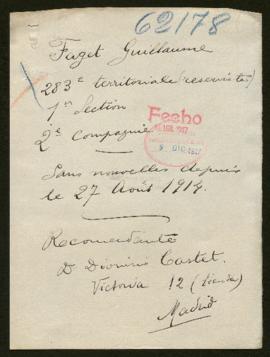 62178
Faget Guillaume
283e territoriale (reserviste)
1re Section
2e Compagnie
Fecho
Sans nouvelles depuis
le 27 Août 1914.
Recomendante
Dn Dionisio Castet.
Victoria 12 (tienda)
Madrid